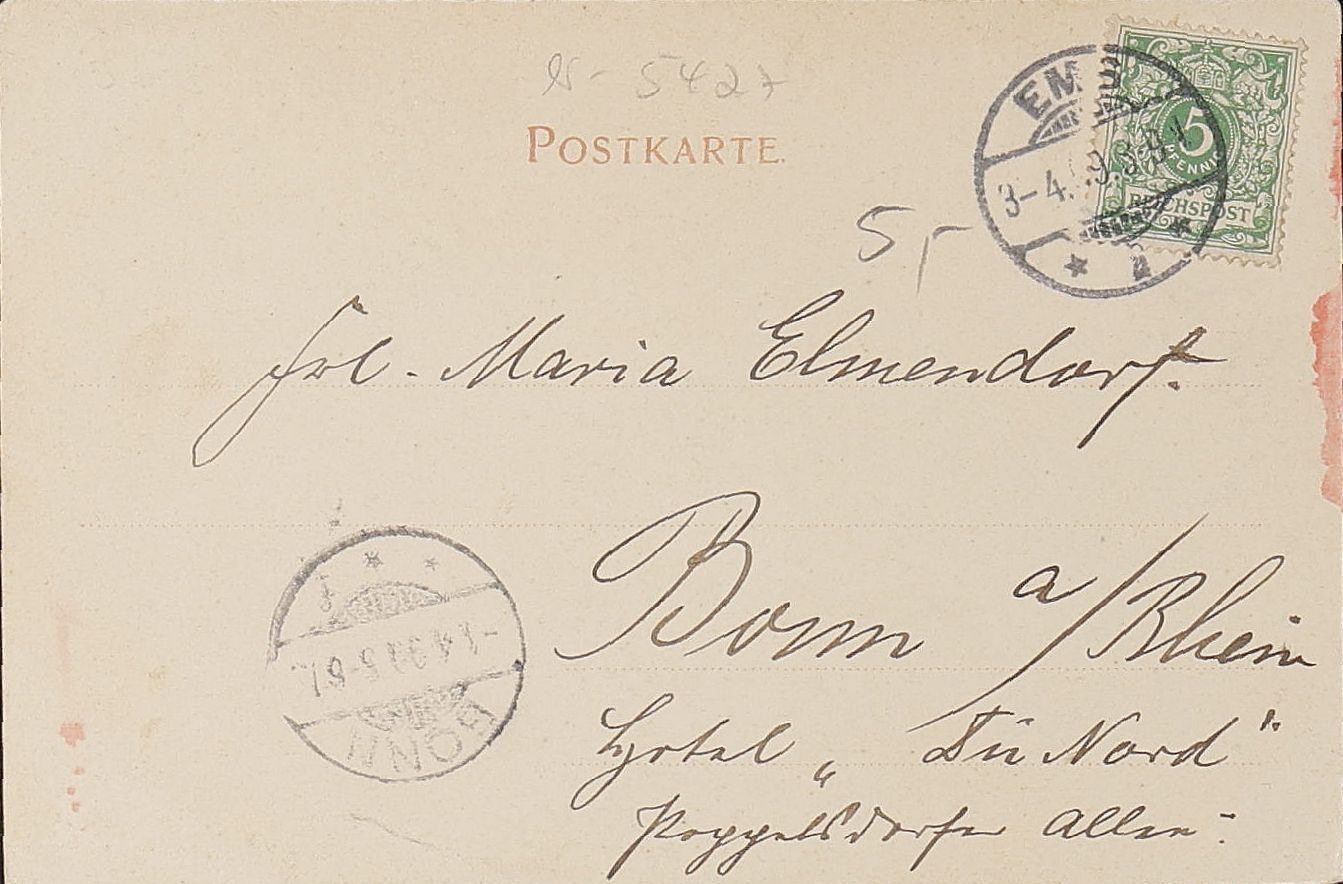 5427
POSTKARTE.
EMS
5
PFENNIG
REICHSPOST
5,-
Frl. Maria Elmendorf.
Bonn a/Rhein
Hotel „Du Nord"
Poppelsdorfer Allee.
BONN